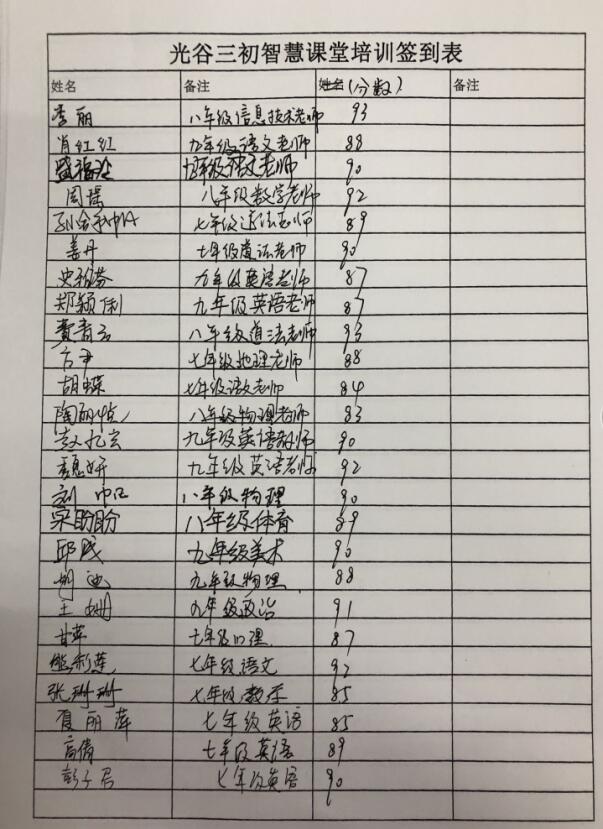 光谷三初智慧课堂培训签到表
姓名 备注 姓名(分数) 备注
李丽 八年级信息技术老师 93
肖红红 九年级语文老师 88
九年级语文老师 90
周瑶 八年级数学老师 92
七年级道法老师 89
姜丹 七年级道法老师 90
九年级英语老师 87
郑颖俐 九年级英语老师 87
八年级道法老师 93
方尹 七年级地理老师 88
胡蝶 七年级语文老师 84
八年级物理老师 83
九年级英语教师 90
九年级英语老师 92
刘 八年级物理 90
梁盼盼 八年级体育 89
邱晟 九年级美术 90
胡迪 九年级物理 88
王姗 九年级政治 91
甘萍 七年级心理 87
熊彩莲 七年级语文 92
张琳琳 七年级数学 85
夏丽萍 七年级英语 85
高倩 七年级英语 89
彭子君 七年级英语 90